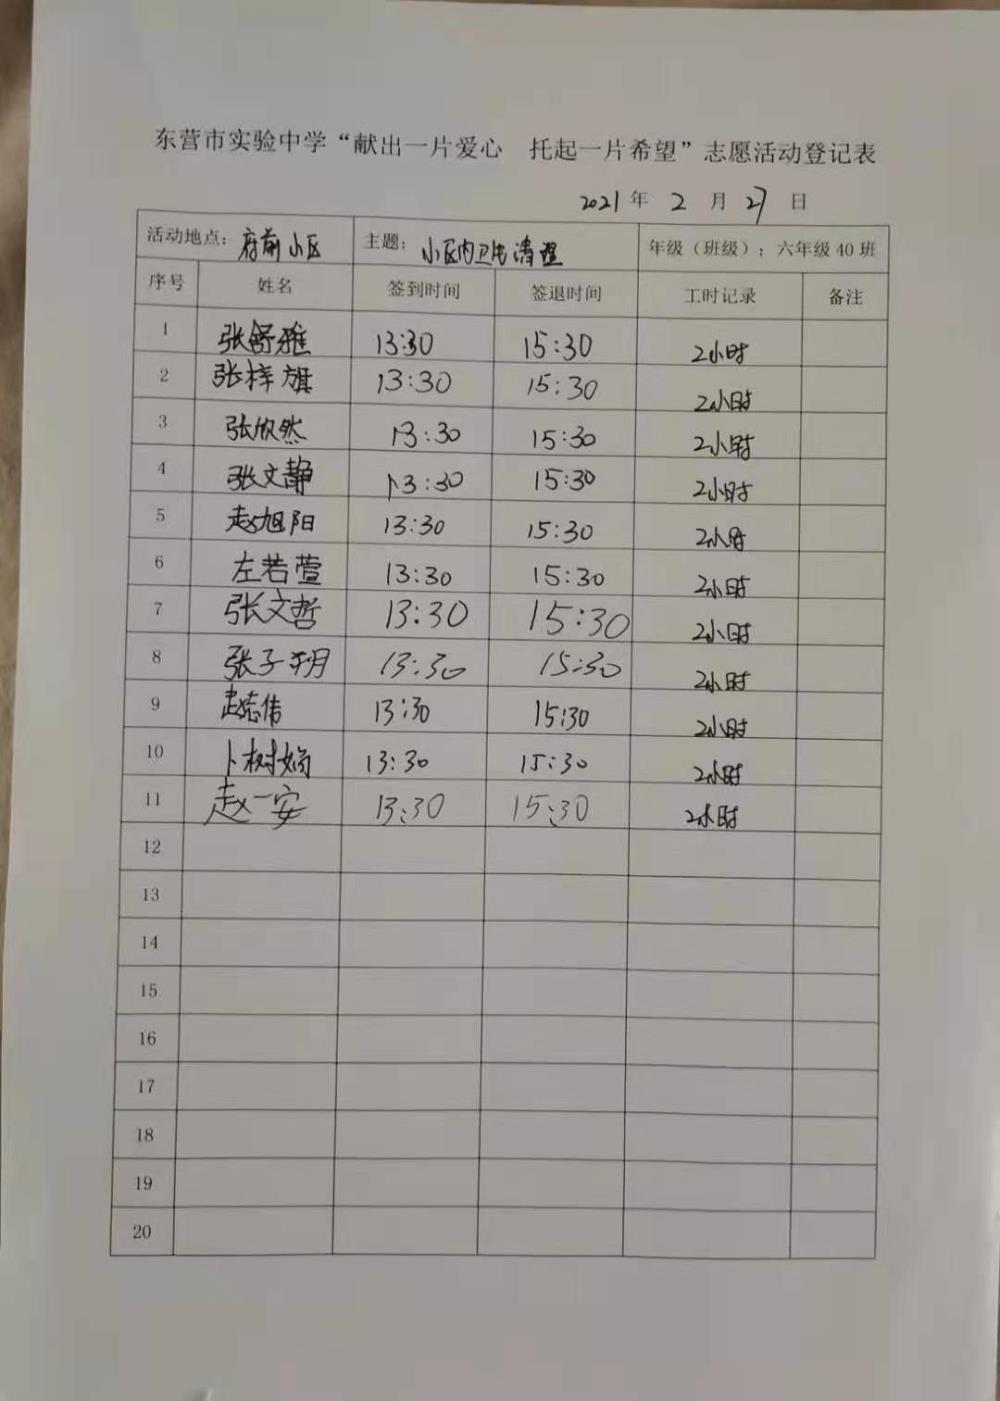 东营市实验中学“献出一片爱心 托起一片希望”志愿活动登记表
2021 年 2 月 27 日
活动地点：府前小区 主题：小区内卫生清理 年级（班级）：六年级 40 班
序号 姓名 签到时间 签退时间 工时记录 备注
1 张舒雅 13:30 15:30 2小时
2 张梓旗 13:30 15:30 2小时
3 张欣然 13:30 15:30 2小时
4 张文静 13:30 15:30 2小时
5 赵旭阳 13:30 15:30 2小时
6 左若萱 13:30 15:30 2小时
7 张文哲 13:30 15:30 2小时
8 张子玥 13:30 15:30 2小时
9 赵志伟 13:30 15:30 2小时
10 卜树娟 13:30 15:30 2小时
11 赵一安 13:30 15:30 2小时
12
13
14
15
16
17
18
19
20